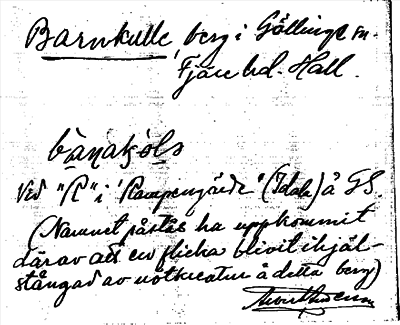 Barnkulle, berg i Gällinge sn.
Fjäre hd. Hall.
bànakòls
Vid "R" i "Rampengärde" (Idala) å GS.
(Namnet påstås ha uppkommit
därav att en flicka blivit ihjäl-
stångad av nötkreatur å detta berg)